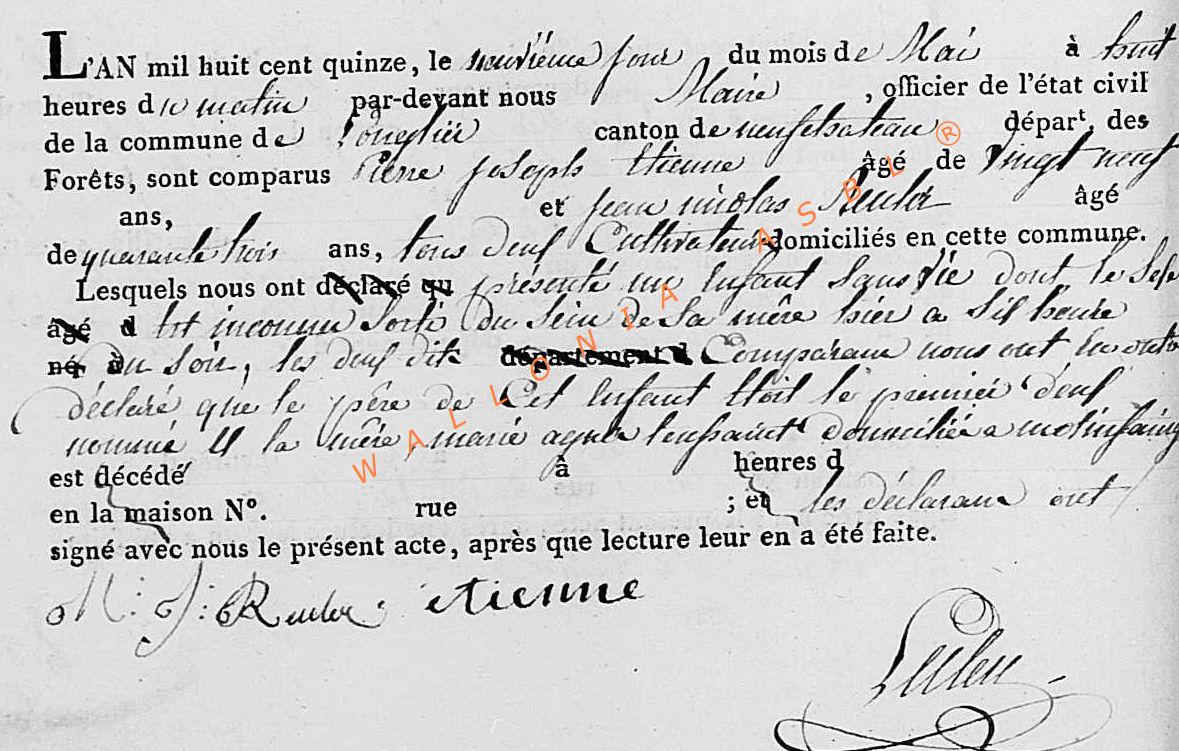 L'AN mil huit cent quinze, le neuvieme jour du mois de Mai à huit
heures du matin par-devant nous Maire , officier de l'état civil
de la commune de Longlier canton de neufchateau départ. des
Forêts, sont comparus Pierre joseph Etienne âgé de vingt neuf
ans, et jean nicolas Reuler âgé
de quarante trois ans, tous deux Cultivateurs domiciliés en cette commune.
Lesquels nous ont déclaré qu présenté un Enfant sans vie dont le sexe
âgé d Est inconnu sorti du sein de sa mère hier a six heure
né à du soir, les deux dits département d Comparans nous ont En outre
déclaré que le père de Cet Enfant Etoit le premier d'eux
nommé Et la mère marie agnes toussaint domiciliée a molinfaing
est décédé à heures d
en la maison N°. rue ; et les déclarans ont
signé avec nous le présent acte, après que lecture leur en a été faite.
etienne
WALLONIA ASBL ®